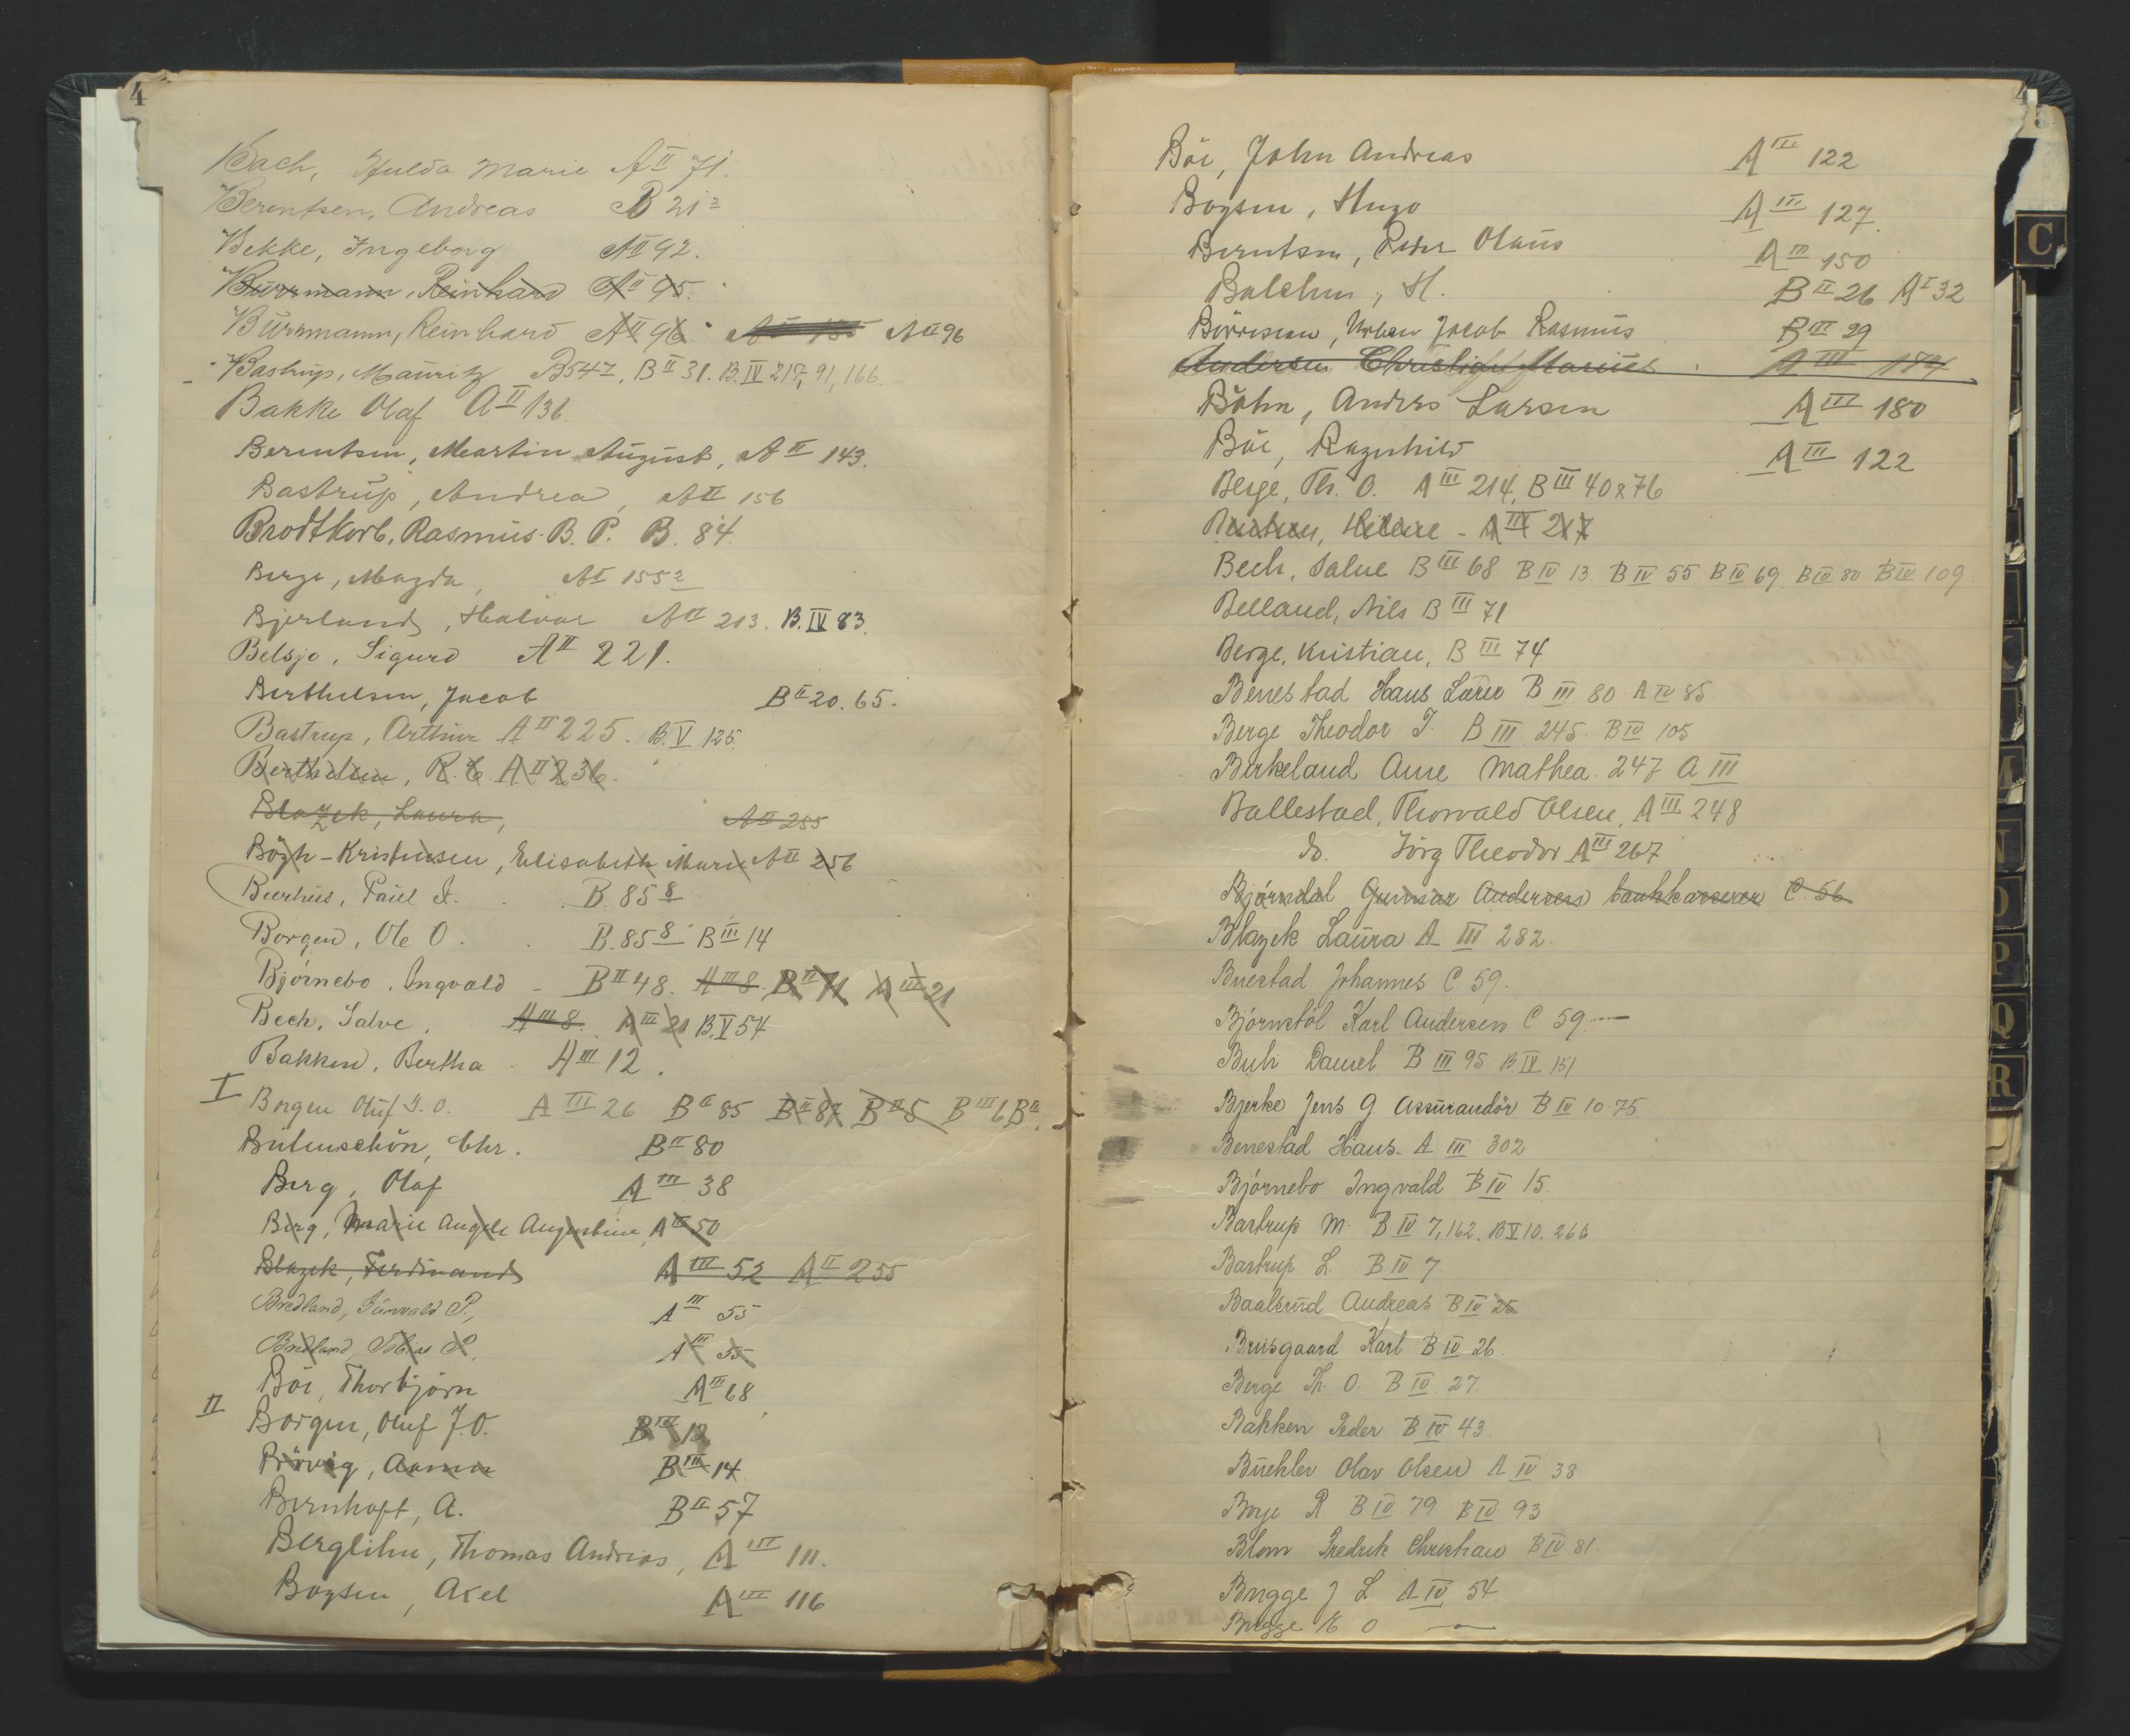 4
Bach, Hulda Marie A II 71.
Berentsen, Andreas B 21 2
Bekke, Ingeborg A II 92.
Bürrmann, Reinhard A II 95.
Bürrmann, Reinhard A II 96. A II 96
Bastrup, Mauritz B 547, B II 31. B. IV 217, 91, 166.
Bakke Olaf A II 136
Berentsen, Martin August, A II 143.
Bastrup, Andrea, A II 156
Brodtkorb, Rasmus B. P. B. 84.
Berge, Magda, A I 155 2
Bjerland, Halvor A II 213. B. IV 83.
Belsjo, Sigurd A II 221.
Berthelsen, Jacob B II 20. 65.
Bastrup, Arthur A II 225. B. V 125.
Berthelsen, R. E. A II 236.
Blazek, Laura, A II 255
Bögh-Kristensen, Elisabeth Marie A II 256
Buerhus, Paul I. B. 85 8
Borgen, Ole O. B. 85 8 B III 14
Bjørnebo, Ingvald - B II 48. A III 8. B II 71 A III 21
Bech, Salve, A III 8. A III 21 B. V 54.
Bakken, Bertha A III 12.
I Borgen Oluf J. O. A III 26 B II 85 B II 87 B II 5 B III 6 B II
Bülenschön, Chr. B II 80
Berg, Olaf A III 38
Berg, Marie Angele Augustine, A III 50
Blazek, Ferdinand A III 52 A II 255
Bredland, Gunvald P., A III 55
Bredland, Tobias P., A III 55
Böe, Thorbjørn A III 68
II Borgen, Oluf J. O. B III 12
Brövig, Aanen B III 14
Bernhoft, A. B II 57
Berglihn, Thomas Andreas, A III 111.
Boysen, Axel A III 116
Böe, John Andreas A III 122
Boysen, Hugo A III 127.
Berntsen, Peder Olaus A III 150
Balchen, H. B II 26 A I 32
Börresen, Urban Jacob Rasmus B III 29
Andersen Christian Marius A III 179
Böhn, Anders Larsen A III 180
Böe, Ragnhild A III 122
Berge, Th. O. A III 214, B III 40 & 76
Helene - A III 217
Bech, Salve B III 68 B IV 13 B IV 55 B IV 69 B IV 80 B IV 109
Belland, Nils B III 71
Berge, Kristian, B III 74
Benestad Hans Lærer B III 80 A IV 85
Berge Theodor T. B III 245 B IV 105
Birkeland Ane Mathea 247 A III
Ballestad, Thorvald Olsen, A III 248
do. Jörg Theodor A III 267
Bjórndal Gunnar Andersen bankkasserer C 56
Blazek Laura A III 282.
Buestad Johannes C 59.
Bjórnstöl Karl Andersen C 59.
Buli Daniel B III 95 B. IV 151
Bjerke Jens G Assurandör B IV 10. 75.
Benestad Hans A III 302
Bjórnebo Ingvald B IV 15.
Bastrup M. B IV 7, 162. B V 10. 266
Bastrup L. B IV 7.
Baalsrud Andreas B IV 25
Brusgaard Karl B IV 26.
Berge Th. O. B IV 27.
Bakken Peder B IV 43.
Büehler Olav Olsen A IV 38
Borge R B IV 79 B IV 93
Blom Fredrik Christian B IV 81.
Brugge J L A IV 54
Brugge E O
C
P
Q
R